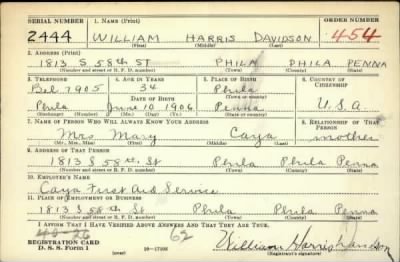 SERIAL NUMBER 1. NAME (Print) ORDER NUMBER
2444 WILLIAM HARRIS DAVIDSON 454
(First) (Middle) (Last)
2. ADDRESS (Print)
1813 S 58th ST PHILA PHILA PENNA
(Number and street or R. F. D. number) (Town) (County) (State)
3. TELEPHONE 4. AGE IN YEARS 5. PLACE OF BIRTH 6. COUNTRY OF CITIZENSHIP
Bel 7905 34 Phila
DATE OF BIRTH
Phila June 10 1906 Penna U.S.A
(Exchange) (Number) (Mo.) (Day) (Yr.) (State or country)
7. NAME OF PERSON WHO WILL ALWAYS KNOW YOUR ADDRESS 8. RELATIONSHIP OF THAT PERSON
Mrs Mary Caya mother
(Mr., Mrs., Miss) (First) (Middle) (Last)
9. ADDRESS OF THAT PERSON
1813 S 58th St Phila Phila Penna
(Number and street or R. F. D. number) (Town) (County) (State)
10. EMPLOYER'S NAME
Caya First Aid Service
11. PLACE OF EMPLOYMENT OR BUSINESS
1813 S 58th St Phila Phila Penna
(Number and street or R. F. D. number) (Town) (County) (State)
I AFFIRM THAT I HAVE VERIFIED ABOVE ANSWERS AND THAT THEY ARE TRUE.
62 William Harris Davidson
REGISTRATION CARD
D. S. S. Form 1 (over) 16—17105 (Registrant's signature)